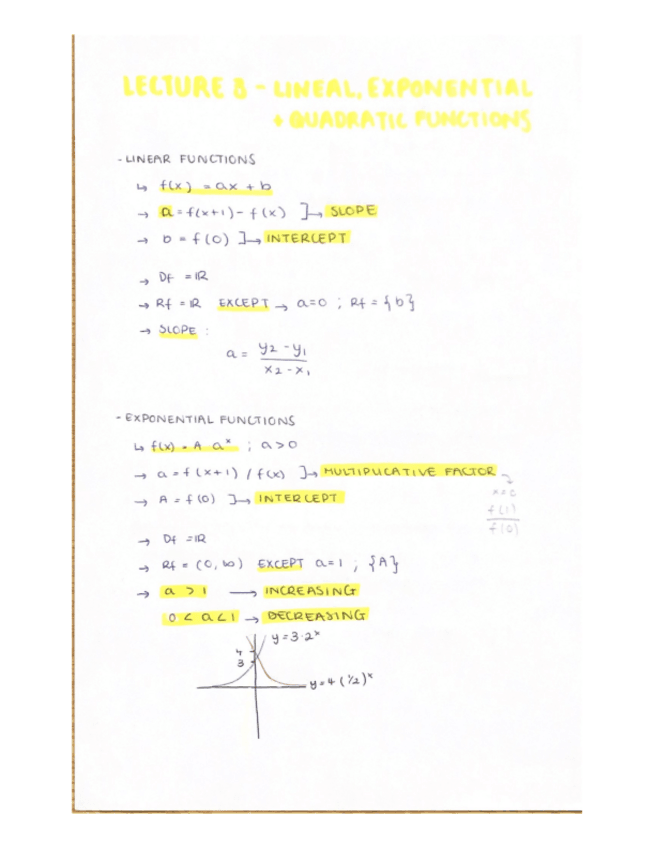 LECTURE 8 - LINEAL, EXPONENTIAL
+ QUADRATIC FUNCTIONS
- LINEAR FUNCTIONS
↳ f(x) = ax + b
→ a = f(x+1) - f(x) ]→ SLOPE
→ b = f(0) ]→ INTERCEPT
→ Df = ℝ
→ Rf = ℝ EXCEPT → a=0 ; Rf = {b}
→ SLOPE :
a = y2 - y1
x2 - x1
- EXPONENTIAL FUNCTIONS
↳ f(x) = A aˣ ; a>0
→ a = f(x+1) / f(x) ]→ MULTIPLICATIVE FACTOR
x=0
→ A = f(0) ]→ INTERCEPT
f(1)
f(0)
→ Df = ℝ
→ Rf = (0, ∞) EXCEPT a=1 ; {A}
→ a > 1 → INCREASING
0 < a < 1 → DECREASING
y = 3·2ˣ
4
3
y = 4 (1/2)ˣ